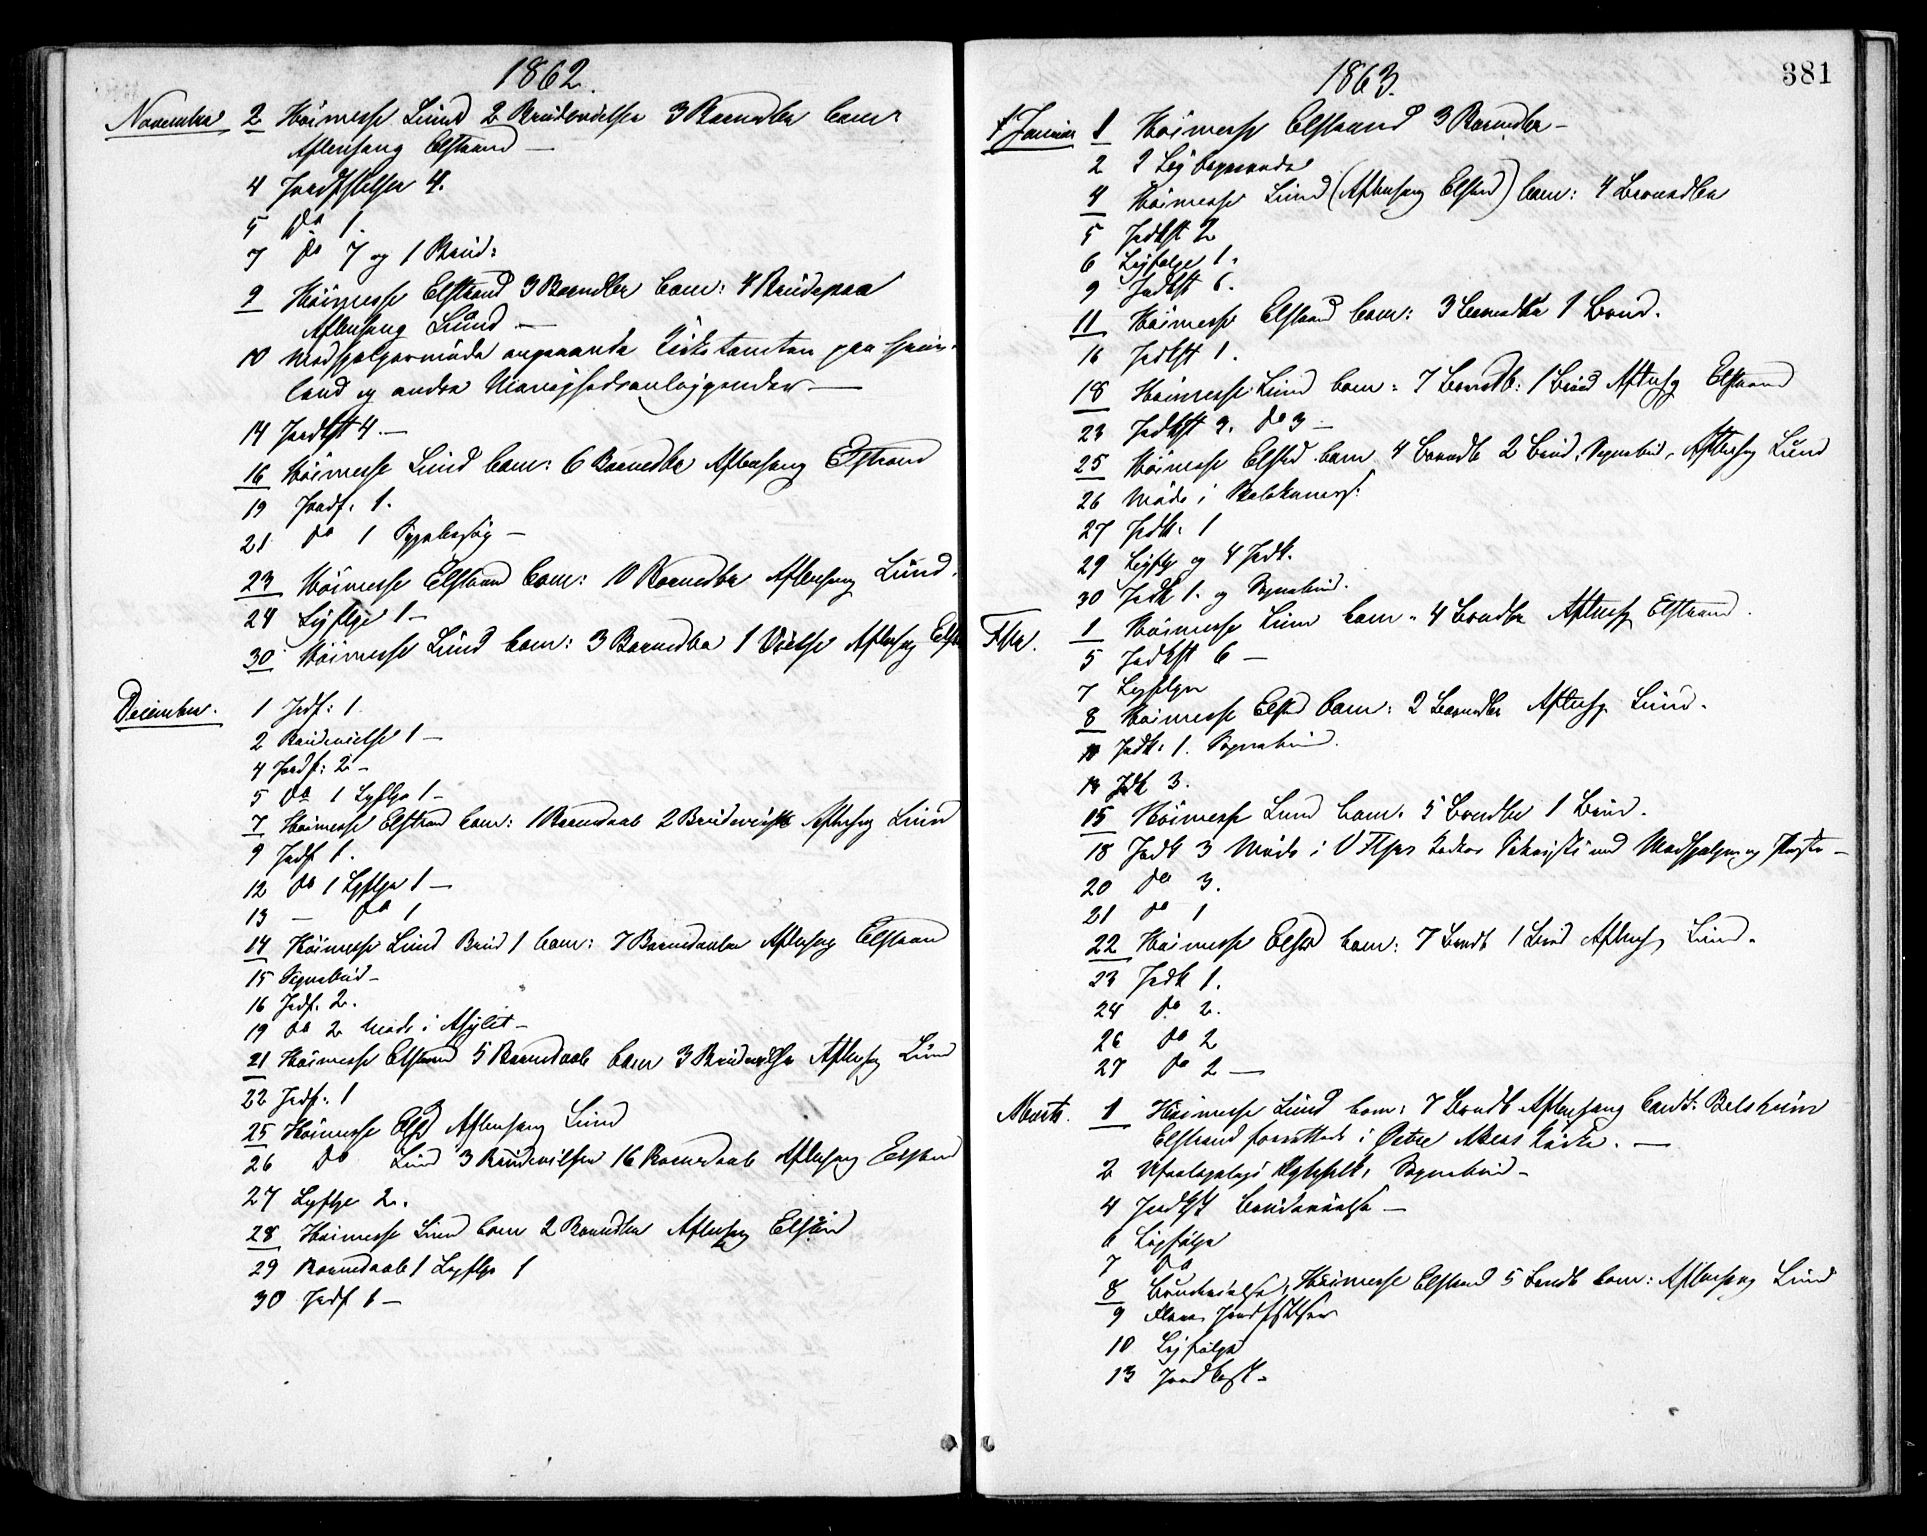 1862.
November 2 Höimesse Lund 2 Brudevielser 3 Barnedbr Com:
Aftensang Elstrand —
4 Jordfstelser 4.
5 Do 1.
7 Do 7 og 1 Brud:
9 Höimesse Elstrand 3 Barnedber Com: 4 Brudepar
Aftensang Lund —
10 angaaende paa
land og andre —
14 Jordfst 4. —
16 Höimesse Lund Com: 6 Barnedbr Aftensang Elstrand
19 Jordf. 1.
21 Do 1 Sygebesög —
23 Höimesse Elstrand Com: 10 Barnedbr Aftensang Lund.
24 Ligflge 1 —
30 Höimesse Lund Com: 3 Barnedba 1 Vielse Aftensag Elst
December. 1 Jrdf: 1.
2 Brudevielse 1 —
4 Jordf: 2 —
5 Do 1 Lgflge 1 —
7 Höimesse Elstrand Com: 1 Barnedaab 2 Brudevielse Aftensg Lund
9 Jrdf 1.
12 Do 1 Lgflge 1 —
13 — Do 1
14 Höimesse Lund Brud 1 Com: 7 Barnedaaber Aftensag Elstran
15 Sognebud —
16 Jrdf. 2.
19 Do 2 Möde i Asylet —
21 Höimesse Elstrand 5 Barnedaab Com 3 Brudevielse Aftensg Lund
22 Jrdf: 1
25 Höimesse Elstd Aftensang Lund
26 Do Lund 3 Brudevielser 16 Barnedaab Aftensang Elstrand
27 Lgflge 2.
28 Höimesse Lund Com 2 Barnedbr Aftensag Elstrand
29 Barnedaab 1 Lgflge 1
30 Jrdf 1 —
1863.
381
Januar 1 Höimesse Elstrand 3 Barnedbr —
2 2 Lig
4 Höimesse Lund (Aftensag Elstrd) Com: 4 Barnedbr
5 Jrdkst 2
6 Ligfølge 1.
9 Jrdkst 6.
11 Höimesse Elstrand Com: 3 Barnedba 1 Brud.
16 Jrdkst 1.
18 Höimesse Lund Com: 7 Barndb: 1 Brud Aftensg Elstrand
23 Jrdkst 2. Do 3 —
25 Höimesse Elstd Com 4 Barndb 2 Brud, Sognebud, Aftensg Lund
26 Möde i
27 Jrdk: 1
29 Ligflg og 4 Jrdk.
30 Jrdk 1. og Sognebud.
Fbr. 1 Höimesse Lund Com. 4 Barndbr Aftensg Elstrand.
5 Jrdkst 6 —
7 Ligflger
8 Höimesse Elstd Com: 2 Barnedbr Aftensg. Lund.
11 Jrdk: 1. Sognebud.
13 Jrdk 3.
15 Höimesse Lund Com. 5 Barndbr 1 Brud.
18 Jrdk 3 Möde i —
20 Do 3.
21 Do 1
22 Höimesse Elstd Com: 7 Barndb 1 Brud Aftensg Lund.
23 Jrdk 1.
24 Do 2.
26 Do 2
27 Do 2 —
Marts. 1 Höimesse Lund Com: 7 Barndb Aftensang Cand:
Elstrand i Østre Akers Kirke. —
2 Sognebud —
4 Jrdkst Brudevielse —
6 Ligfølge
7 Do
8 Brudevielse, Höimesse Elstrand 5 Barndb Com: Aftensang Lund
9 Flere Jordfstelser
10 Ligfølge
13 Jordkast —